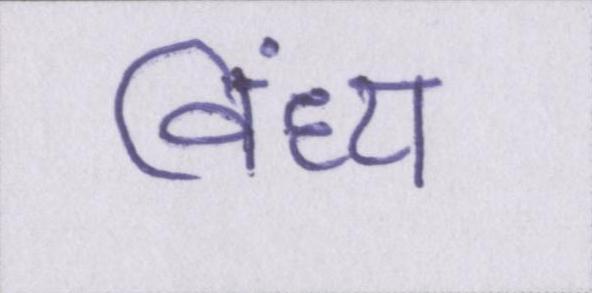 विंध्य